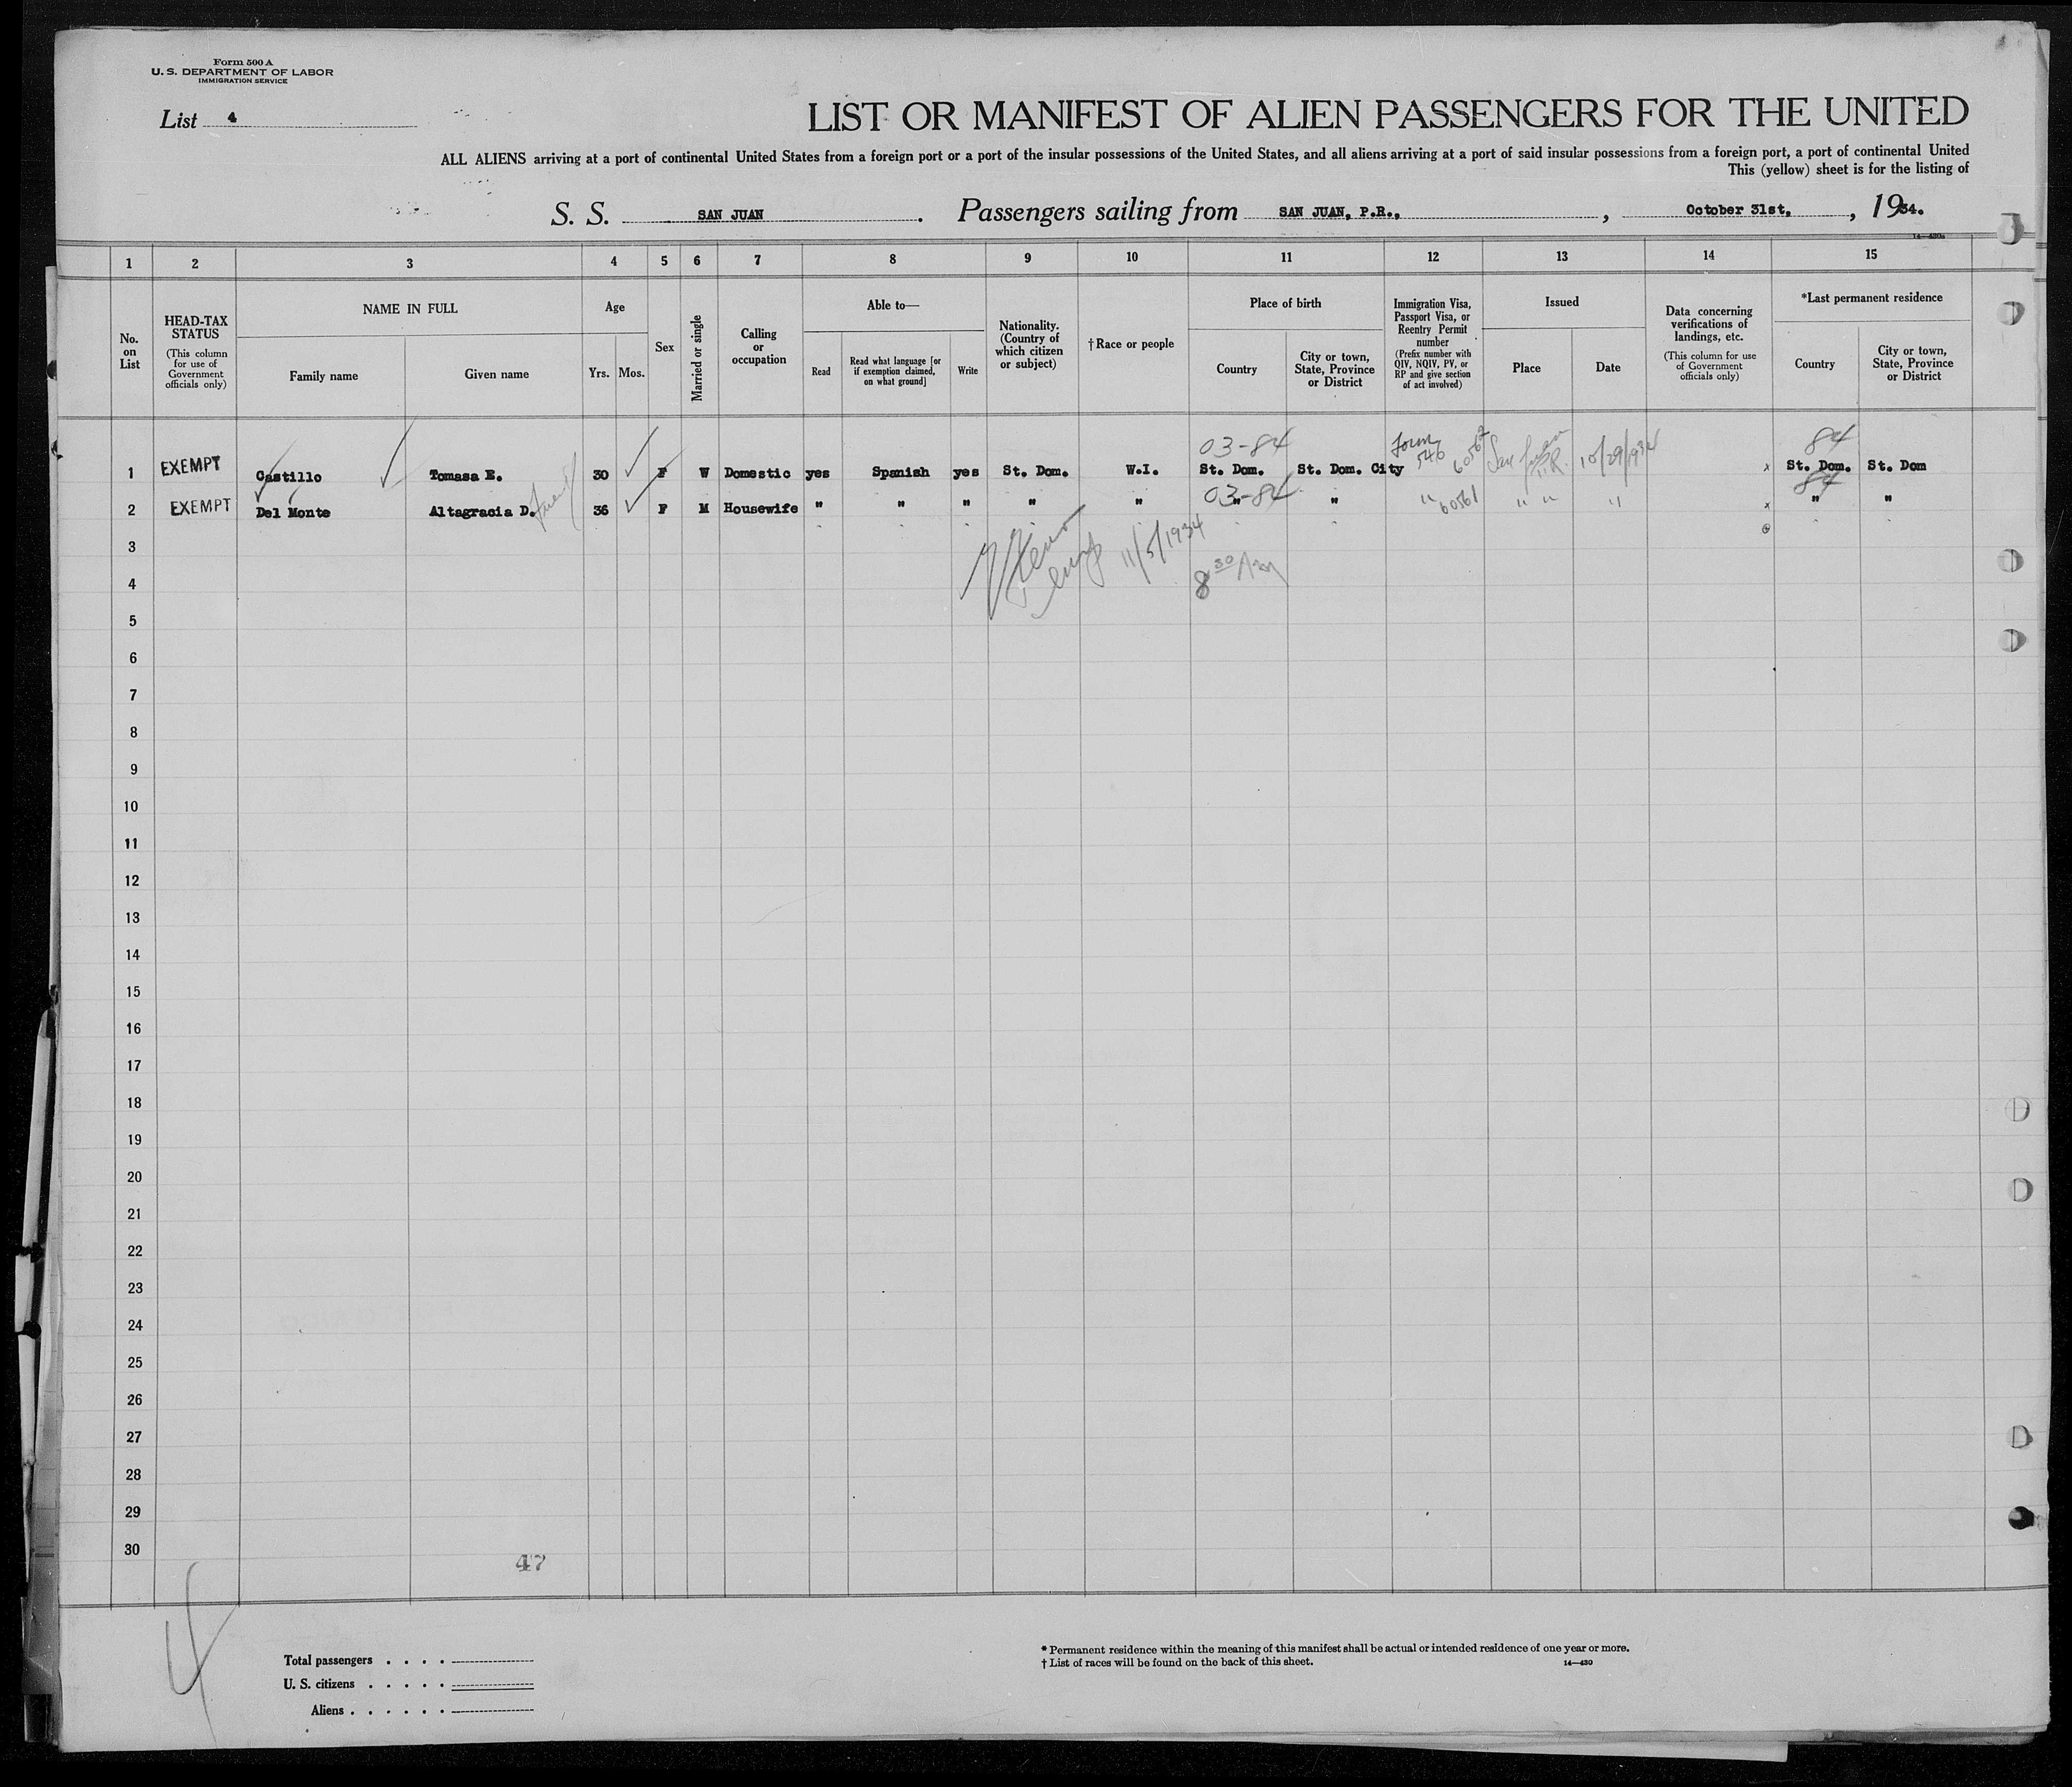 Form 500 A
U. S. DEPARTMENT OF LABOR
IMMIGRATION SERVICE
List 4
LIST OR MANIFEST OF ALIEN PASSENGERS FOR THE UNITED
ALL ALIENS arriving at a port of continental United States from a foreign port or a port of the insular possessions of the United States, and all aliens arriving at a port of said insular possessions from a foreign port, a port of continental United
This (yellow) sheet is for the listing of
S. S. SAN JUAN. Passengers sailing from SAN JUAN, P.R., , October 31st. , 1934.
14—430a
1 2 3 4 5 6 7 8 9 10 11 12 13 14 15
No. on List
HEAD-TAX STATUS
(This column for use of Government officials only)
NAME IN FULL
Family name
Given name
Age
Yrs. Mos.
Sex
Married or single
Calling or occupation
Able to—
Read
Read what language [or if exemption claimed, on what ground]
Write
Nationality. (Country of which citizen or subject)
†Race or people
Place of birth
Country
City or town, State, Province or District
Immigration Visa, Passport Visa, or Reentry Permit number
(Prefix number with QIV, NQIV, PV, or RP and give section of act involved)
Issued
Place
Date
Data concerning verifications of landings, etc.
(This column for use of Government officials only)
*Last permanent residence
Country
City or town, State, Province or District
03-84 84
1 EXEMPT Castillo Tomasa E. 30 F W Domestic yes Spanish yes St. Dom. W.I. St. Dom. St. Dom. City Form 546 San Juan P.R. 10/29/1934 x St. Dom. St. Dom
03-84 84
2 EXEMPT Del Monte Altagracia D. 36 F M Housewife " " " " " " " " 60561 " " " x " "
11/5/1934
8 30 AM
3
4
5
6
7
8
9
10
11
12
13
14
15
16
17
18
19
20
21
22
23
24
25
26
27
28
29
30
47
4
Total passengers . . . .
U. S. citizens . . . . .
Aliens . . . . . .
* Permanent residence within the meaning of this manifest shall be actual or intended residence of one year or more.
† List of races will be found on the back of this sheet.
14—430